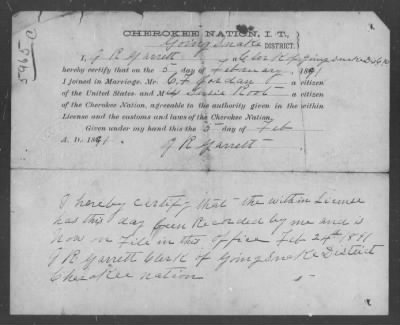 5965 C
CHEROKEE NATION, I. T.,
Going Snake DISTRICT.
I, J R Garrett a Clerk of Going Snake Dist C N
hereby certify that on the 5 day of February, 1891
I joined in Marriage, Mr. C. F. Jordan a citizen
of the United States, and M Susie Root a citizen
of the Cherokee Nation, agreeable to the authority given in the within
License and the customs and laws of the Cherokee Nation.
Given under my hand this the 5 day of Feb
A. D. 1891.
J R Garrett
I hereby certify that the within License
has this day been Recorded by me and is
Now on File in this office Feb 24th 1891
J R Garrett Clerk of Going Snake District
Cherokee Nation